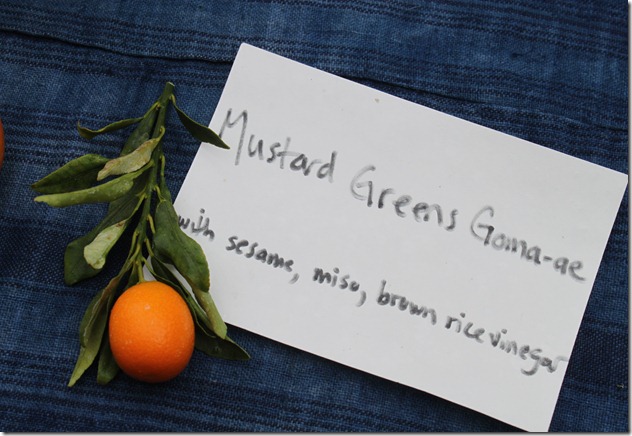 Mustard Greens Goma-ae
with sesame, miso, brown rice vinegar